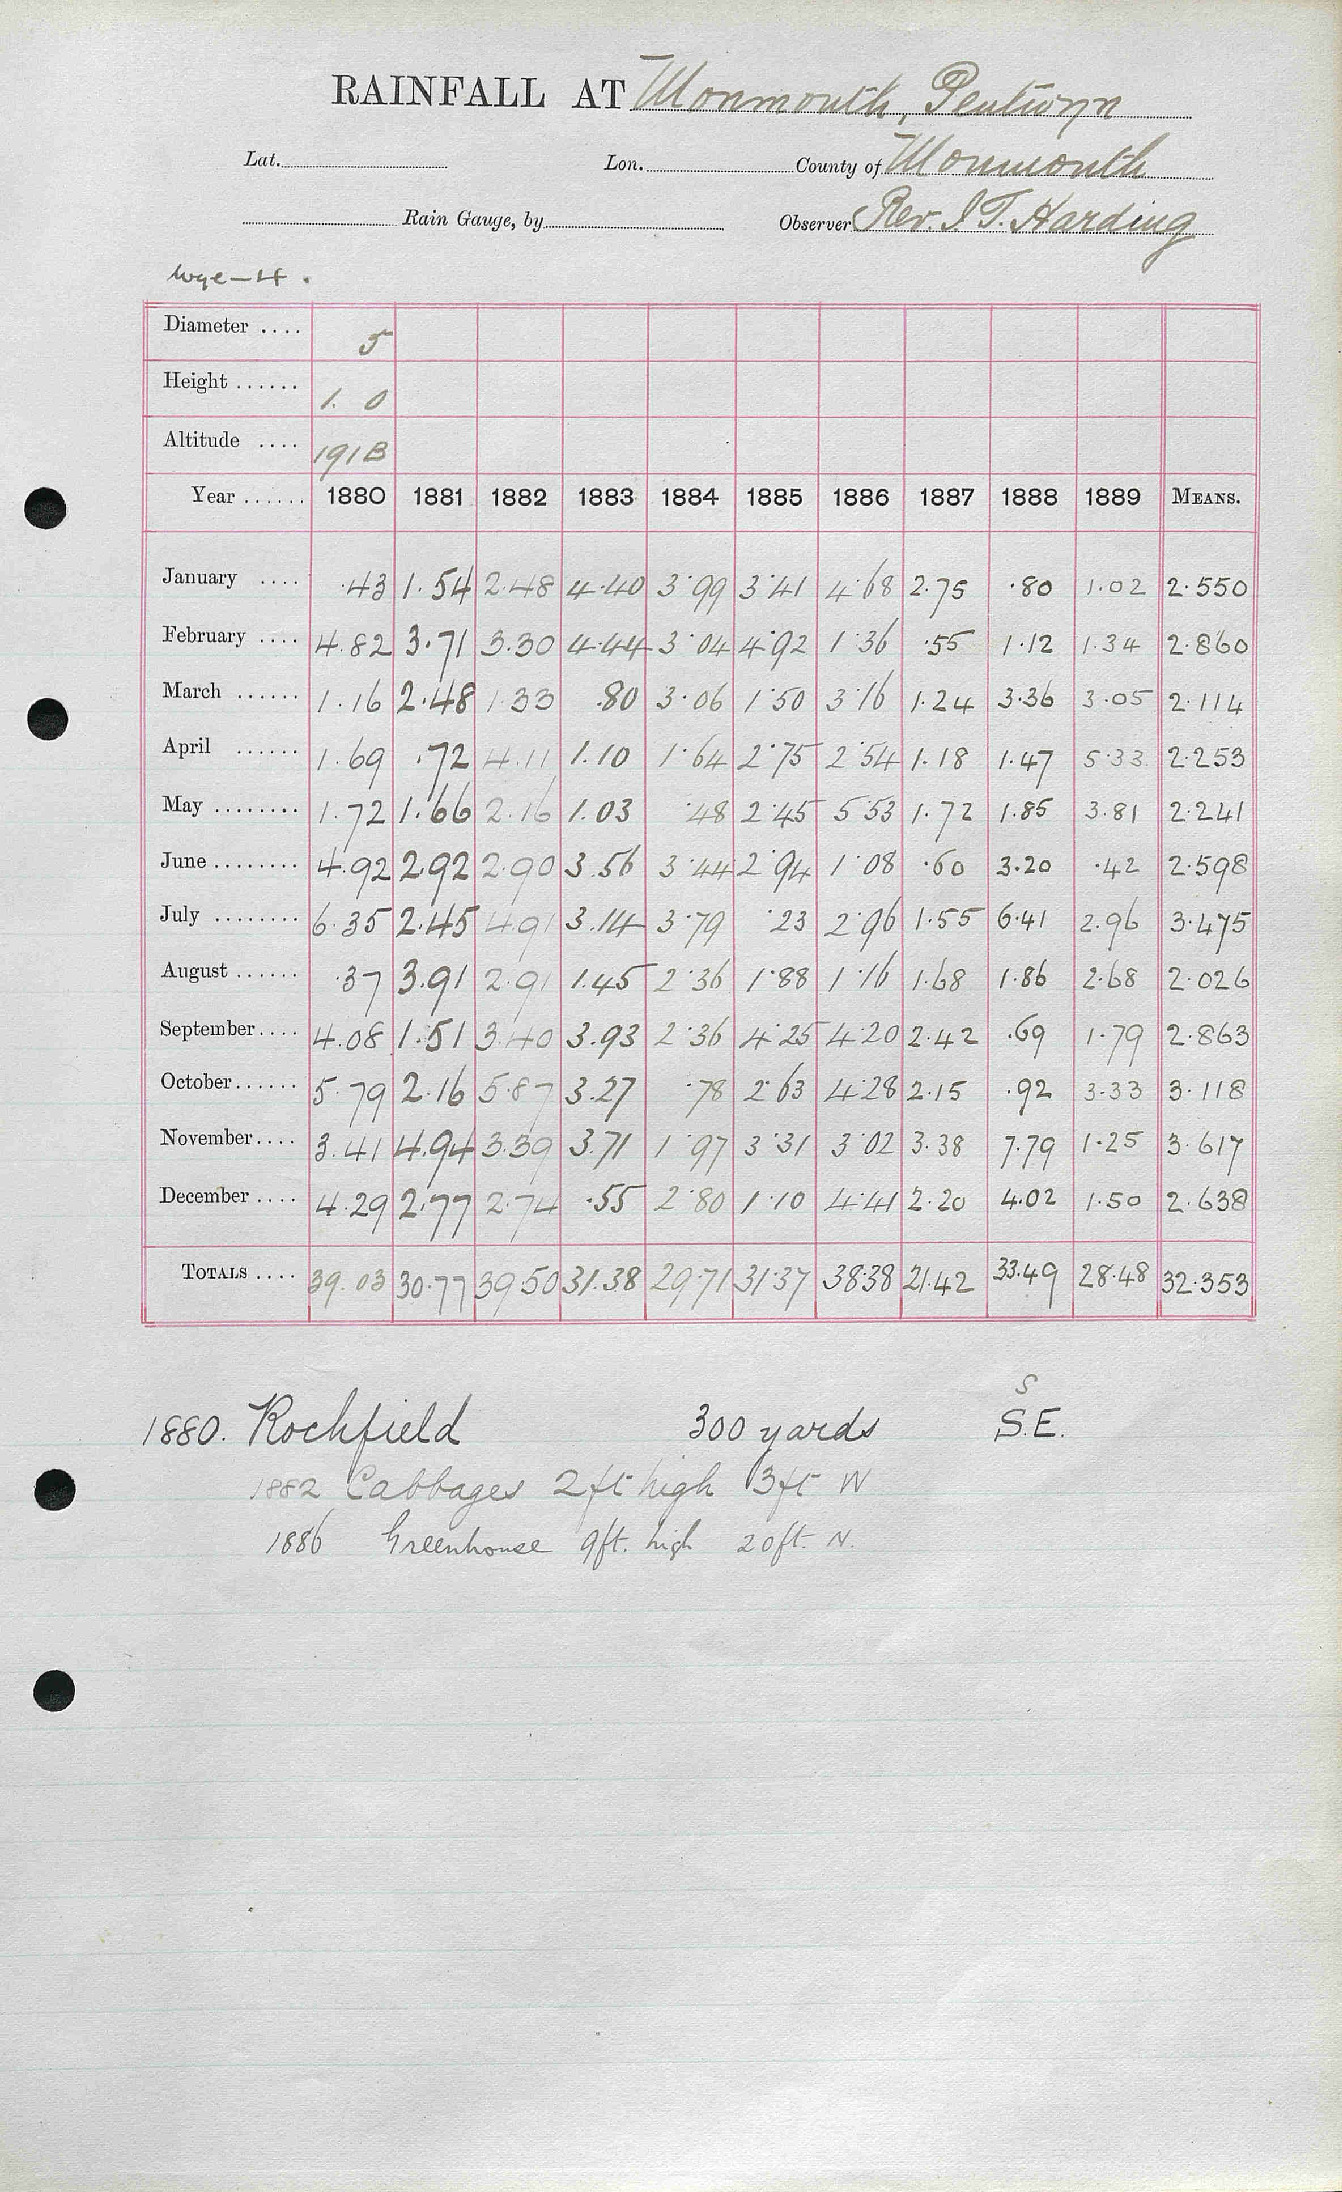 RAINFALL AT Monmouth, Pentwyn
Lat. Lon. County of Monmouth
Rain Gauge, by Observer Rev. J T. Harding
Wye-4.
Diameter .... 5
Height ...... 1. 0
Altitude .... 191B
Year ...... 1880 1881 1882 1883 1884 1885 1886 1887 1888 1889 MEANS.
January .... .43 1.54 2.48 4.40 3.99 3.41 4.68 2.75 .80 1.02 2.550
February .... 4.82 3.71 3.30 4.44 3.04 4.92 1.36 .55 1.12 1.34 2.860
March ...... 1.16 2.48 1.33 .80 3.06 1.50 3.16 1.24 3.36 3.05 2.114
April ...... 1.69 .72 4.11 1.10 1.64 2.75 2.54 1.18 1.47 5.33 2.253
May ........ 1.72 1.66 2.16 1.03 .48 2.45 5.53 1.72 1.85 3.81 2.241
June ........ 4.92 2.92 2.90 3.56 3.44 2.94 1.08 .60 3.20 .42 2.598
July ........ 6.35 2.45 4.91 3.14 3.79 .23 2.96 1.55 6.41 2.96 3.475
August ...... .37 3.91 2.91 1.45 2.36 1.88 1.16 1.68 1.86 2.68 2.026
September .... 4.08 1.51 3.40 3.93 2.36 4.25 4.20 2.42 .69 1.79 2.863
October ...... 5.79 2.16 5.87 3.27 .78 2.63 4.28 2.15 .92 3.33 3.118
November .... 3.41 4.94 3.39 3.71 1.97 3.31 3.02 3.38 7.79 1.25 3.617
December .... 4.29 2.77 2.74 .55 2.80 1.10 4.41 2.20 4.02 1.50 2.638
TOTALS .... 39.03 30.77 39.50 31.38 29.71 31.37 38.38 21.42 33.49 28.48 32.353
S
1880. Rockfield 300 yards S.E.
1882 Cabbages 2ft high 3ft W
1886 Greenhouse 9ft. high 20ft. N.